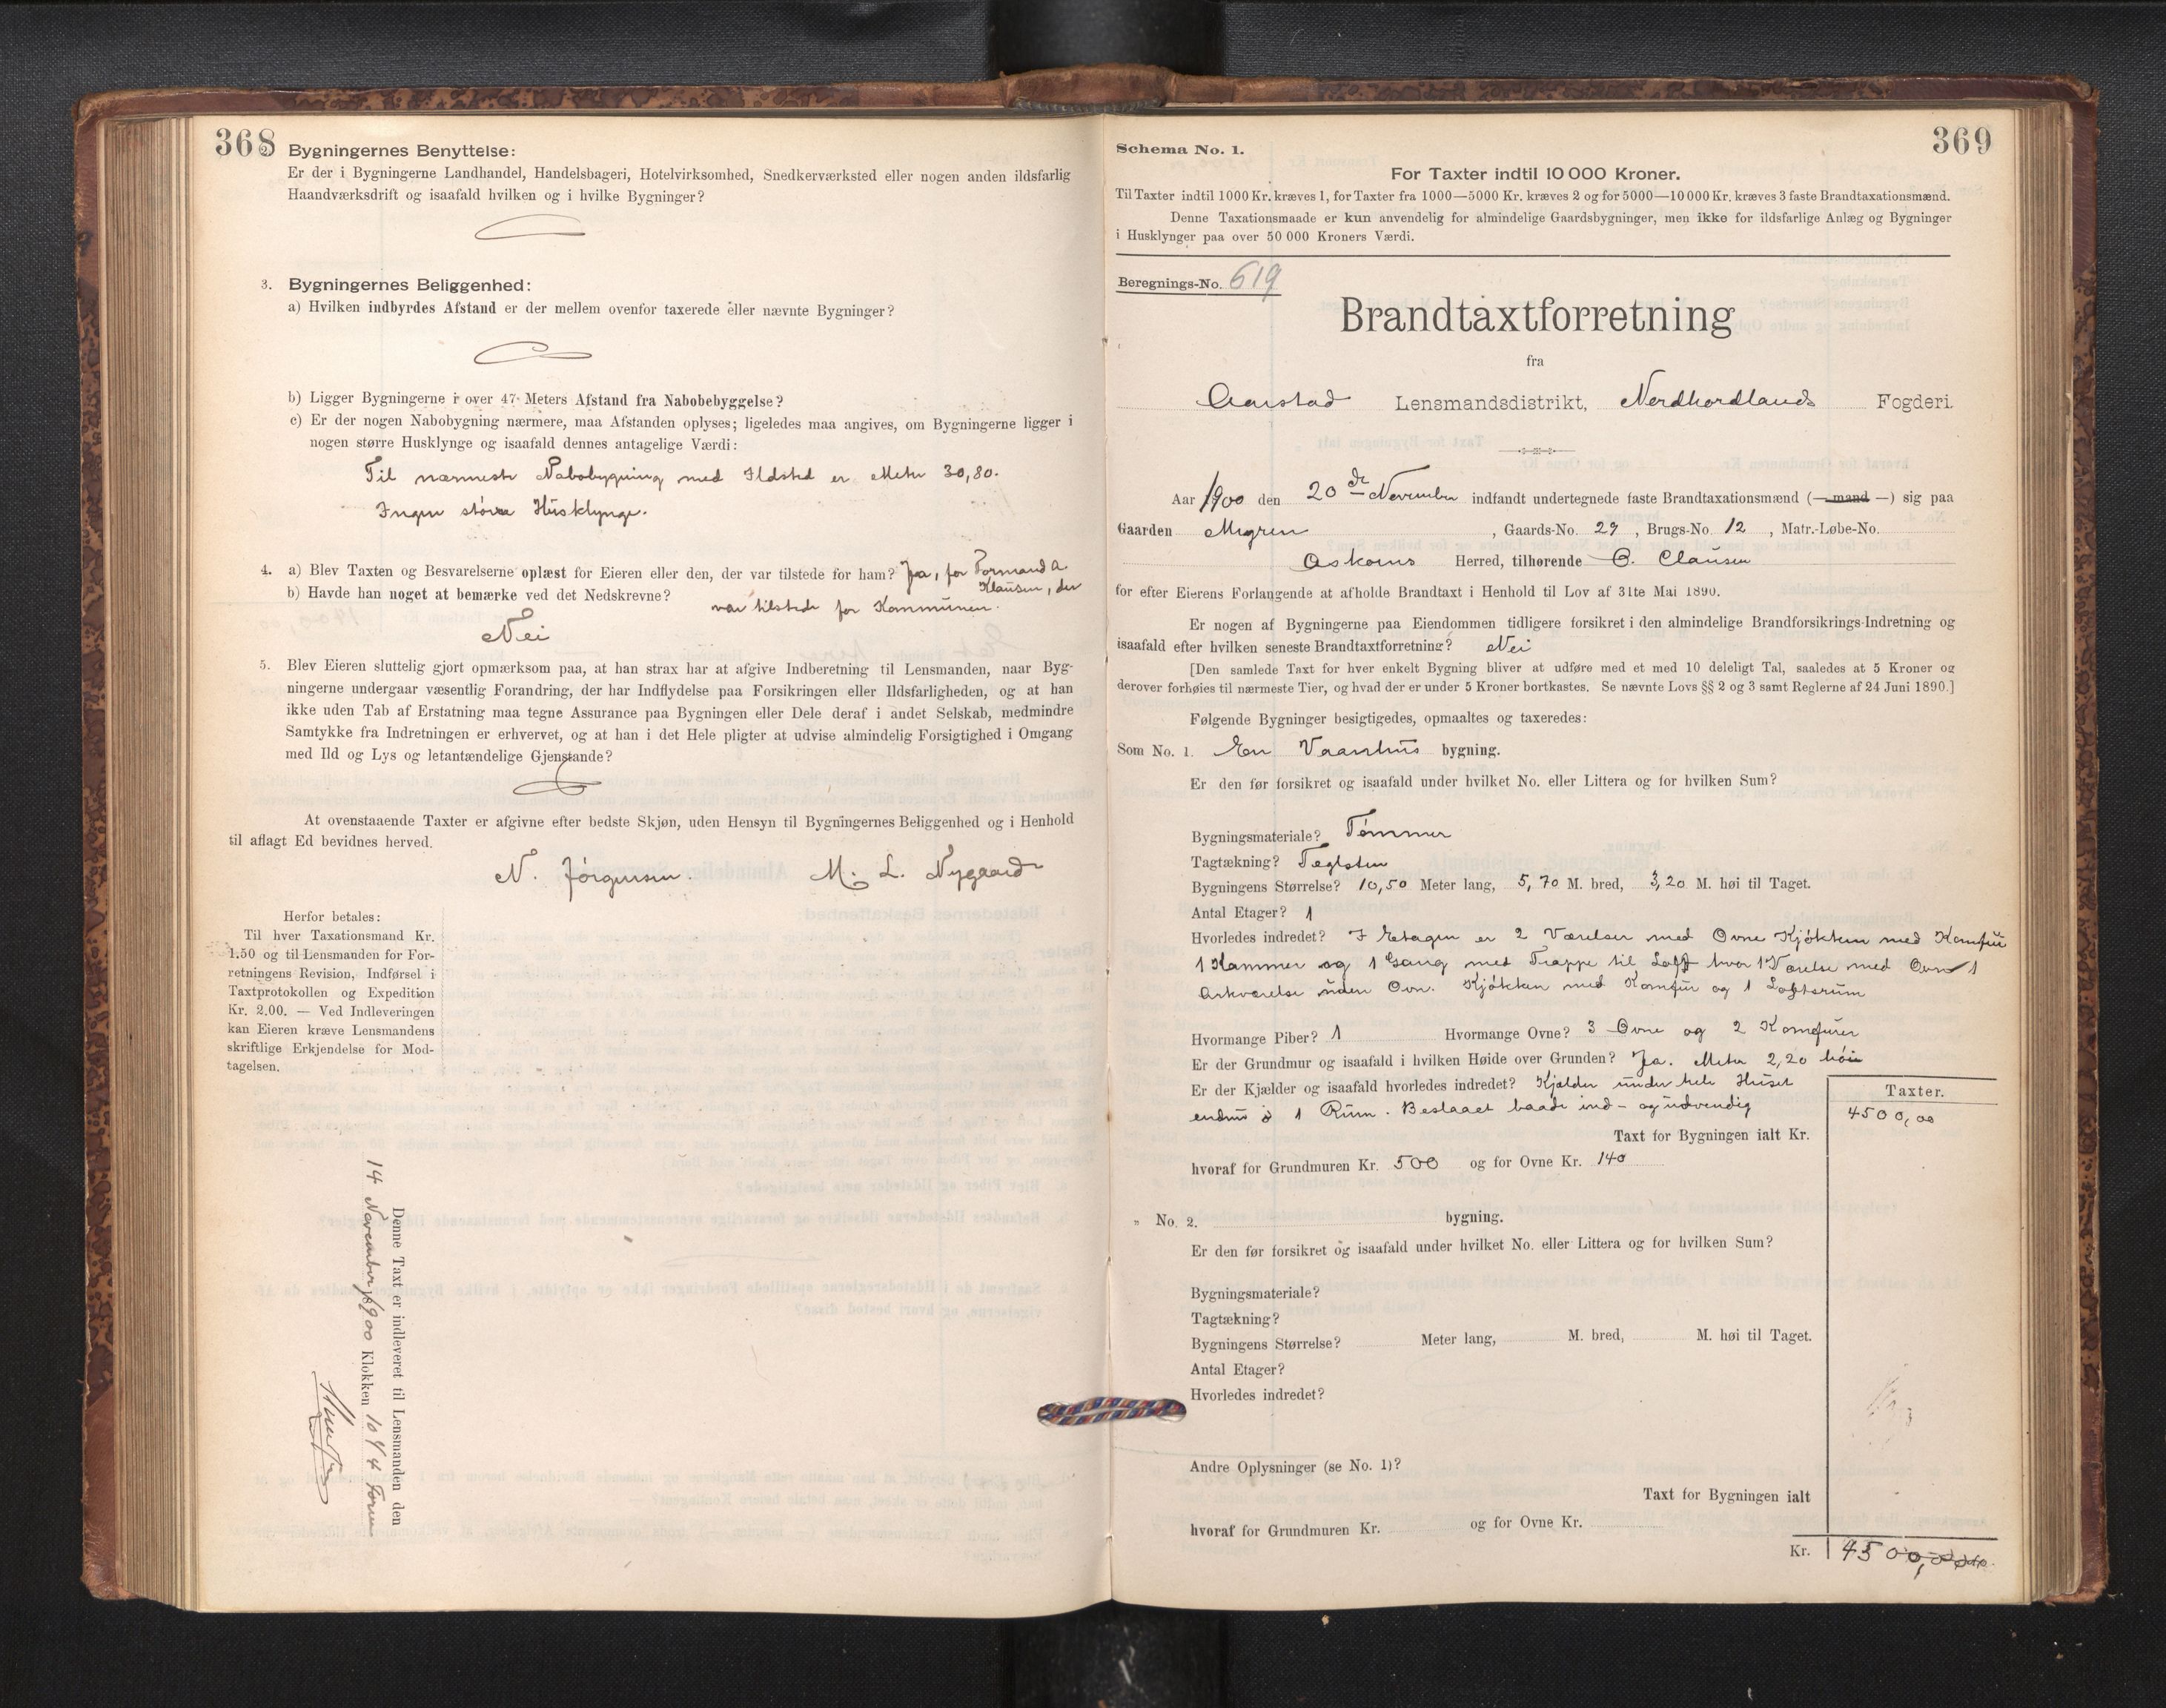 368
2. Bygningernes Benyttelse:
Er der i Bygningerne Landhandel, Handelsbageri, Hotelvirksomhed, Snedkerværksted eller nogen anden ildsfarlig
Haandværksdrift og isaafald hvilken og i hvilke Bygninger?
3. Bygningernes Beliggenhed:
a) Hvilken indbyrdes Afstand er der mellem ovenfor taxerede eller nævnte Bygninger?
b) Ligger Bygningerne i over 47 Meters Afstand fra Nabobebyggelse?
c) Er der nogen Nabobygning nærmere, maa Afstanden oplyses; ligeledes maa angives, om Bygningerne ligger i
nogen større Husklynge og isaafald dennes antagelige Værdi:
Til nærmeste Nabobygning med Ildsted er Meter 30,80.
Ingen større Husklynge.
4. a) Blev Taxten og Besvarelserne oplæst for Eieren eller den, der var tilstede for ham? Ja, for Formand A.
Klausen, der
b) Havde han noget at bemærke ved det Nedskrevne? var tilstede for Kommunen.
Nei
5. Blev Eieren sluttelig gjort opmærksom paa, at han strax har at afgive Indberetning til Lensmanden, naar Byg-
ningerne undergaar væsentlig Forandring, der har Indflydelse paa Forsikringen eller Ildsfarligheden, og at han
ikke uden Tab af Erstatning maa tegne Assurance paa Bygningen eller Dele deraf i andet Selskab, medmindre
Samtykke fra Indretningen er erhvervet, og at han i det Hele pligter at udvise almindelig Forsigtighed i Omgang
med Ild og Lys og letantændelige Gjenstande?
At ovenstaaende Taxter er afgivne efter bedste Skjøn, uden Hensyn til Bygningernes Beliggenhed og i Henhold
til aflagt Ed bevidnes herved.
N. Jørgensen. M. L. Nygaard
Herfor betales:
Til hver Taxationsmand Kr.
1.50 og til Lensmanden for For-
retningens Revision, Indførsel i
Taxtprotokollen og Expedition
Kr. 2.00. — Ved Indleveringen
kan Eieren kræve Lensmandens
skriftlige Erkjendelse for Mod-
tagelsen.
Denne Taxt er indleveret til Lensmanden den
14 November 1900 Klokken 10 1/4 Form
369
Schema No. 1.
For Taxter indtil 10 000 Kroner.
Til Taxter indtil 1000 Kr. kræves 1, for Taxter fra 1000—5000 Kr. kræves 2 og for 5000—10 000 Kr. kræves 3 faste Brandtaxationsmænd.
Denne Taxationsmaade er kun anvendelig for almindelige Gaardsbygninger, men ikke for ildsfarlige Anlæg og Bygninger
i Husklynger paa over 50 000 Kroners Værdi.
Beregnings-No. 619
Brandtaxtforretning
fra
Aarstad Lensmandsdistrikt, Nordhordlands Fogderi.
Aar 1900 den 20de November indfandt undertegnede faste Brandtaxationsmænd (— mand —) sig paa
Gaarden Mygren, Gaards-No. 29, Brugs-No. 12, Matr.-Løbe-No.
Askøens Herred, tilhørende C. Clausen
for efter Eierens Forlangende at afholde Brandtaxt i Henhold til Lov af 31te Mai 1890.
Er nogen af Bygningerne paa Eiendommen tidligere forsikret i den almindelige Brandforsikrings-Indretning og
isaafald efter hvilken seneste Brandtaxtforretning? Nei
[Den samlede Taxt for hver enkelt Bygning bliver at udføre med et med 10 deleligt Tal, saaledes at 5 Kroner og
derover forhøies til nærmeste Tier, og hvad der er under 5 Kroner bortkastes. Se nævnte Lovs §§ 2 og 3 samt Reglerne af 24 Juni 1890.]
Følgende Bygninger besigtigedes, opmaaltes og taxeredes:
Som No. 1. En Vaanhus bygning.
Er den før forsikret og isaafald under hvilket No. eller Littera og for hvilken Sum?
Bygningsmateriale? Tømmer
Tagtækning? Teglsten
Bygningens Størrelse? 10,50 Meter lang, 5,70 M. bred, 3,20 M. høi til Taget.
Antal Etager? 1
Hvorledes indredet? I Etagen er 2 Værelser med Ovne Kjøkken med Komfur
1 Kammer og 1 Gang med Trappe til Loft hvor 1 Værelse med Ovn 1
Arkværelse uden Ovn. Kjøkken med Komfur og 1 Loftsrum
Hvormange Piber? 1 Hvormange Ovne? 3 Ovne og 2 Komfurer
Er der Grundmur og isaafald i hvilken Høide over Grunden? Ja. Meter 2,20 høi
Er der Kjælder og isaafald hvorledes indredet? Kjælder under hele Huset
endnu i 1 Rum. Beslaaet baade ind- og udvendig
Taxter.
4500,00
Taxt for Bygningen ialt Kr.
hvoraf for Grundmuren Kr. 500 og for Ovne Kr. 140
„ No. 2. bygning.
Er den før forsikret og isaafald under hvilket No. eller Littera og for hvilken Sum?
Bygningsmateriale?
Tagtækning?
Bygningens Størrelse? Meter lang, M. bred, M. høi til Taget.
Antal Etager?
Hvorledes indredet?
Andre Oplysninger (se No. 1)?
Taxt for Bygningen ialt
hvoraf for Grundmuren Kr. og for Ovne Kr.
Kr. 4500,00